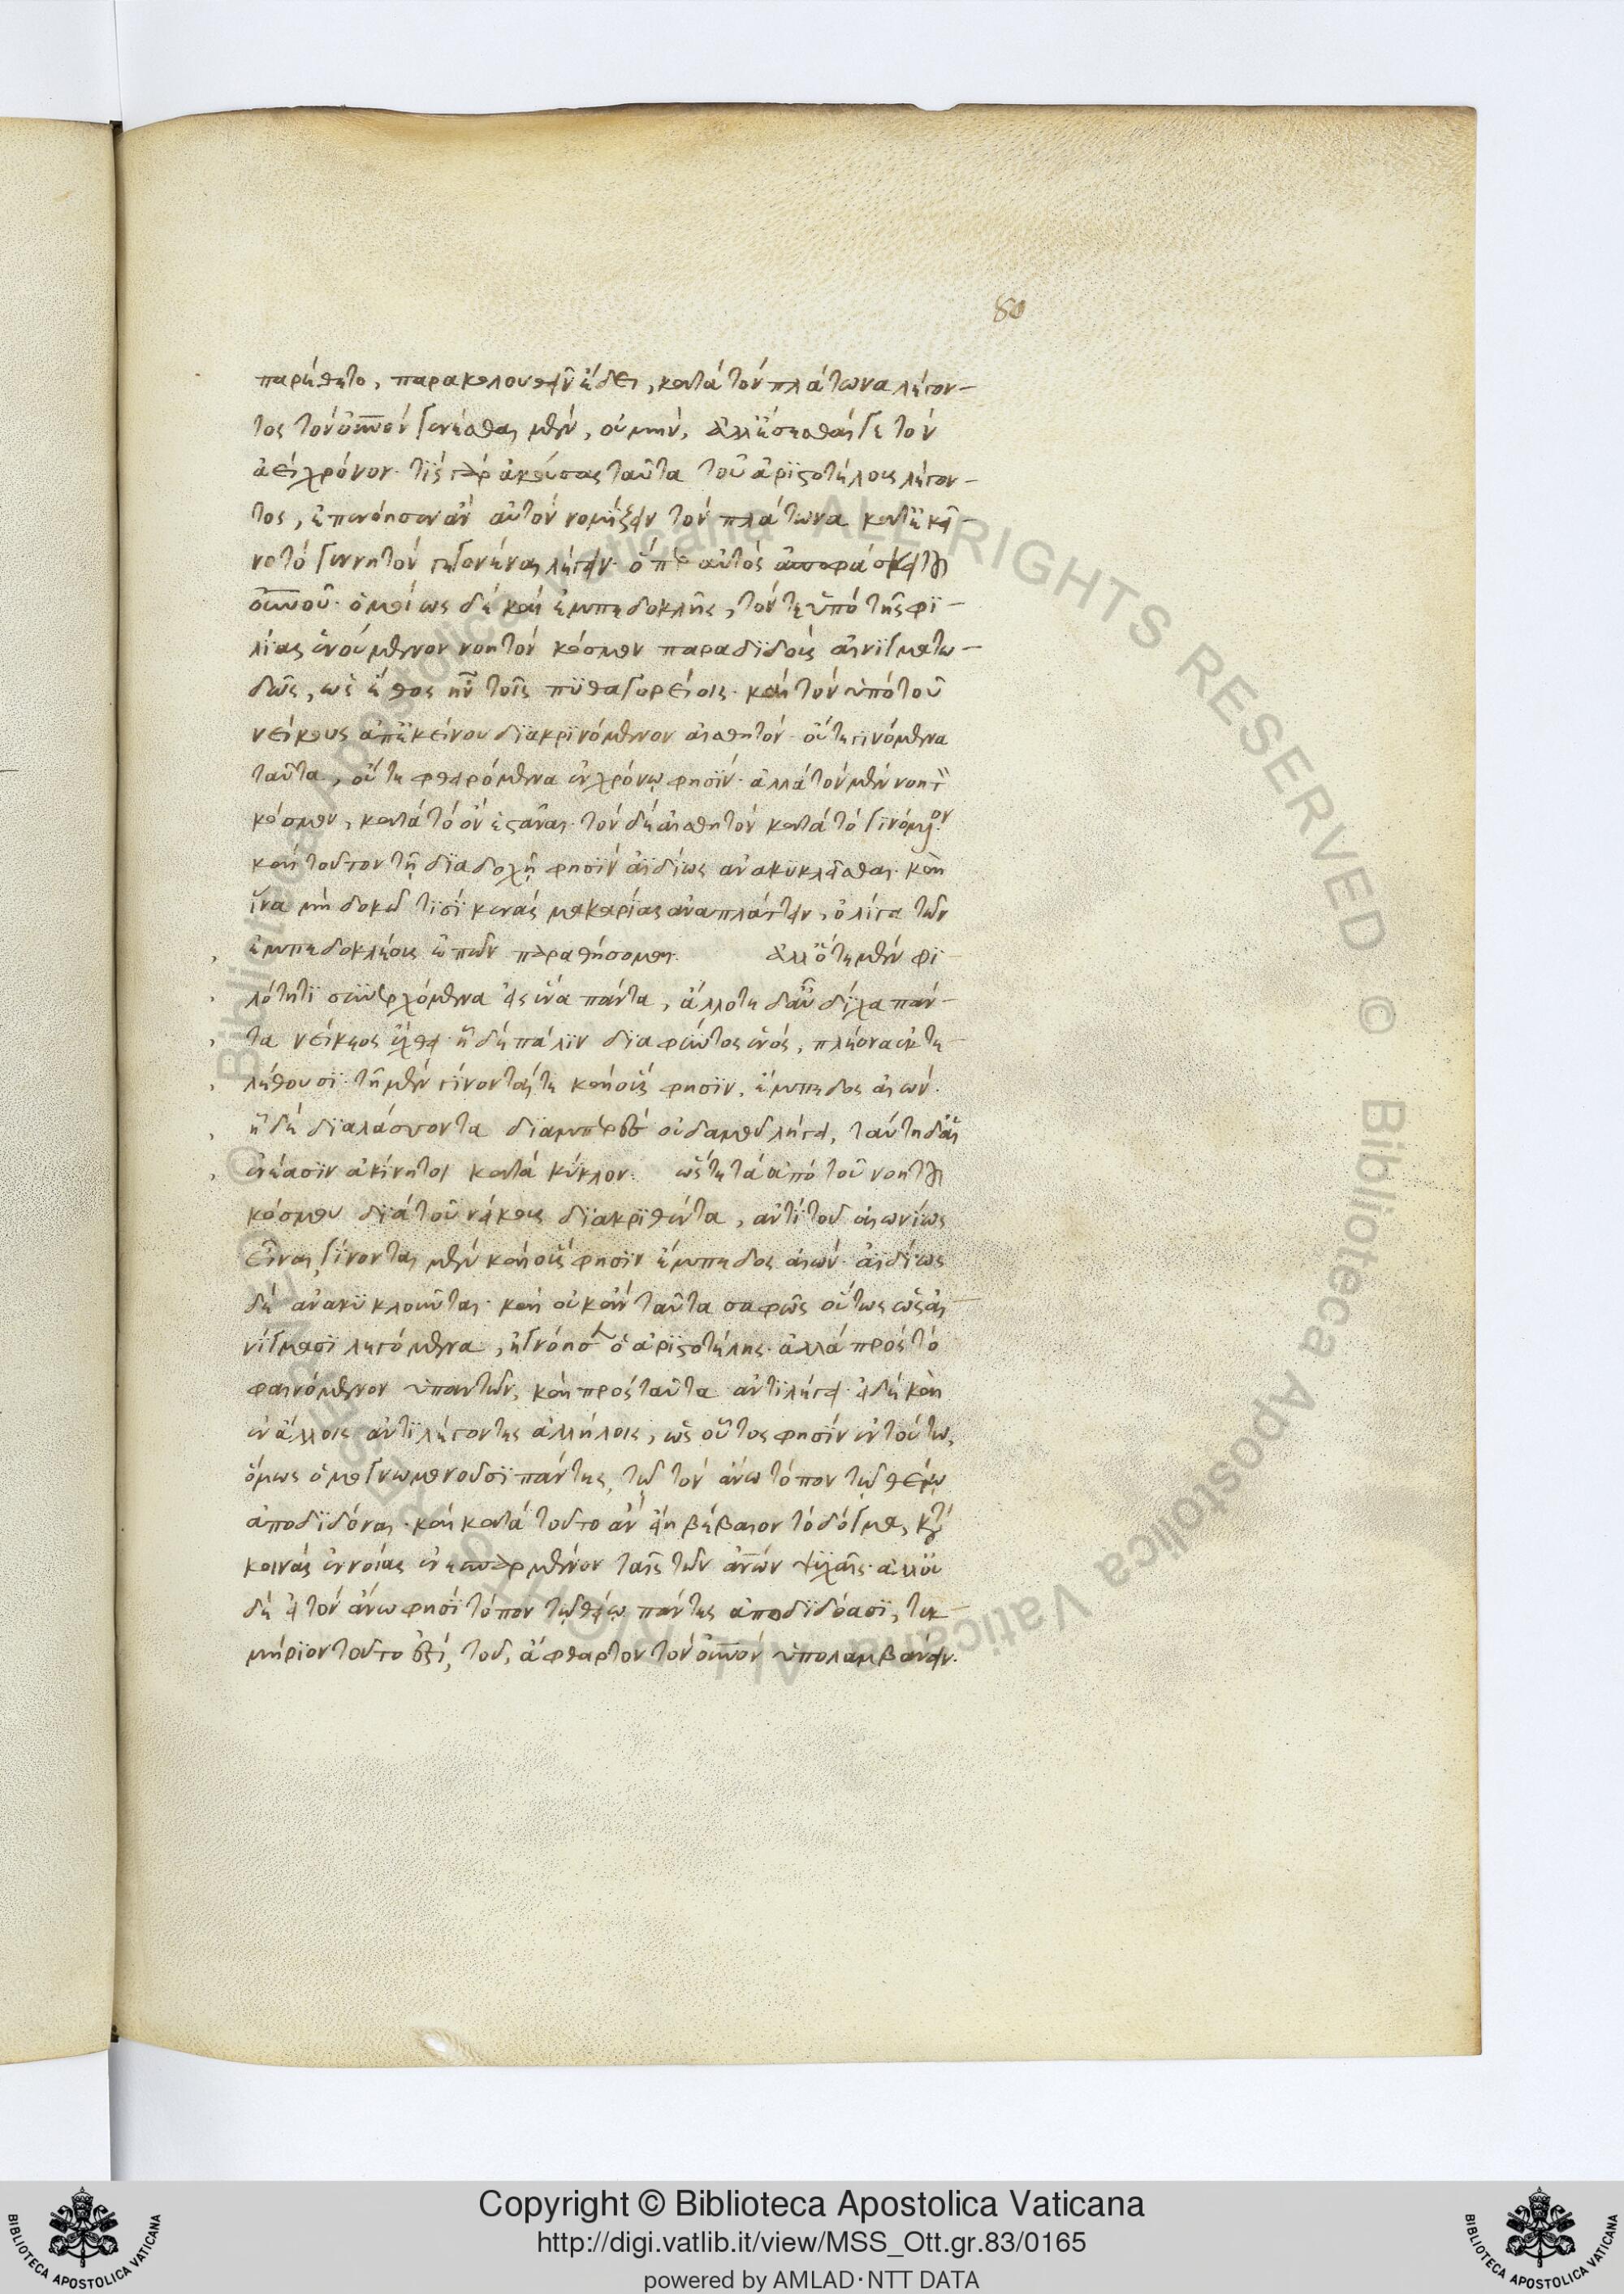 80
παρέθετο, παρακολουθεῖν ἔδει, κατὰ τὸν πλάτωνα λέγον-
τος τὸν οὐνὸν γενέσθαι μὲν, οὐ μὴν, ἀλλ' ἔσεσθαί γε τὸν
ἀεὶ χρόνον· τίς γὰρ ἀκούσας ταῦτα τοῦ ἀριστοτέλους λέγον-
τος, ἐπενόησεν ἂν αὐτὸν νομίζειν τὸν πλάτωνα κατ' ἐκεῖ-
νο τὸ γεννητὸν γεγονέναι λέγειν· ὅπερ αὐτὸς ἀποφάσκει τοῦ
οὐνοῦ· ὁμοίως δὲ καὶ ἐμπεδοκλῆς, τόν τε ὑπὸ τῆς φι-
λίας ἑνούμενον νοητὸν κόσμον παραδιδοὺς αἰνιγματω-
δῶς, ὡς ἔθος ἦν τοῖς πυθαγορείοις· καὶ τὸν ὑπὸ τοῦ
νείκους ἀπ' ἐκείνου διακρινόμενον αἰσθητὸν· οὔτε γινόμενα
ταῦτα, οὔτε φθειρόμενα ἐν χρόνῳ φησίν· ἀλλὰ τὸν μὲν νοητὸν
κόσμον, κατὰ τὸ ὂν ἑστᾶναι· τὸν δὲ αἰσθητὸν κατὰ τὸ γινόμενον
καὶ τοῦτον τῇ διαδοχῇ φησὶν ἀϊδίως ἀνακυκλεῖσθαι· καὶ
ἵνα μὴ δοκῶ τισὶ κενὰς μακαρίας ἀναπλάττειν, ὀλίγα τῶν
ἐμπεδοκλέους ἐπῶν παραθήσομαι. ἄλλοτε μὲν φι-
λότητι συνερχόμενα εἰς ἓνα πάντα, ἄλλοτε δ' αὖ δίχα πάν-
τα νείκεος ἔχθει· ἠδὲ πάλιν διαφύντος ἑνὸς, πλέονα ἐκτε-
λέθουσι· τῇ μὲν γίνονταί τε καὶ οὔ σφησιν, ἔμπεδος αἰών.
ἠδὲ διαλάσσοντα διαμπερὲς οὐδαμοῦ λήγει, ταύτη δ' αἰ
ἐνέασιν ἀκίνητοι κατὰ κύκλον. ὥστε τὰ ἀπὸ τοῦ νοητοῦ
κόσμου διὰ τοῦ νείκους διακριθέντα, ἀντὶ τοῦ αἰωνίως
εἶναι, γίνονται μὲν καὶ οὔ σφησιν ἔμπεδος αἰών· ἀϊδίως
δὲ ἀνακυκλοῦνται· καὶ οὐκ ἂν ταῦτα σαφῶς οὕτως ὡς ἐν αἰ-
νίγμασι λεγόμενα, ἠγνόησεν ὁ ἀριστοτέλης· ἀλλὰ πρὸς τὸ
φαινόμενον ὑπαντῶν, καὶ πρὸς ταῦτα ἀντιλέγει· εἰ δὲ καὶ
ἐν ἄλλοις ἀντιλέγοντες ἀλλήλοις, ὡς οὗτος φησὶν ἐν τούτω,
ὅμως ὁμογνωμονοῦσι πάντες, τῷ τὸν ἄνω τόπον τῷ θείῳ
ἀποδιδόναι· καὶ κατὰ τοῦτο ἂν εἴη βέβαιον τὸ δόγμα, κατὰ
κοινὰς ἐννοίας ἐνεσπαρμένον ταῖς τῶν ἀνῶν ψυχαῖς· ἀλλ' οὐ
δὲ εἰ τὸν ἄνω φησὶ τόπον τῷ θείῳ πάντες ἀποδιδόασι, τεκ-
μήριον τοῦτο ἐστί, τοῦ, ἄφθαρτον τὸν οὐνὸν ὑπολαμβάνειν.
Copyright © Biblioteca Apostolica Vaticana
http://digi.vatlib.it/view/MSS_Ott.gr.83/0165
powered by AMLAD·NTT DATA